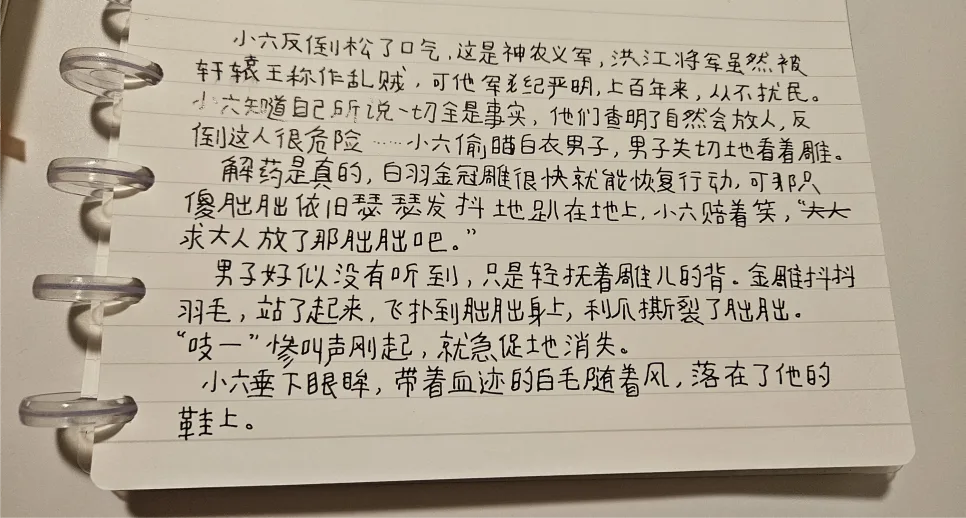 小六反倒松了口气,这是神农义军,洪江将军虽然被
轩辕王称作乱贼,可他军纪严明,上百年来,从不扰民。
小六知道自己所说一切全是事实,他们查明了自然会放人,反
倒这人很危险……小六偷瞄白衣男子,男子关切地看着雕。
解药是真的,白羽金冠雕很快就能恢复行动,可那只
傻朏朏依旧瑟瑟发抖地趴在地上,小六赔着笑,“大人
求大人放了那朏朏吧。”
男子好似没有听到,只是轻抚着雕儿的背。金雕抖抖
羽毛,站了起来,飞扑到朏朏身上,利爪撕裂了朏朏。
“吱一”惨叫声刚起,就急促地消失。
小六垂下眼眸,带着血迹的白毛随着风,落在了他的
鞋上。